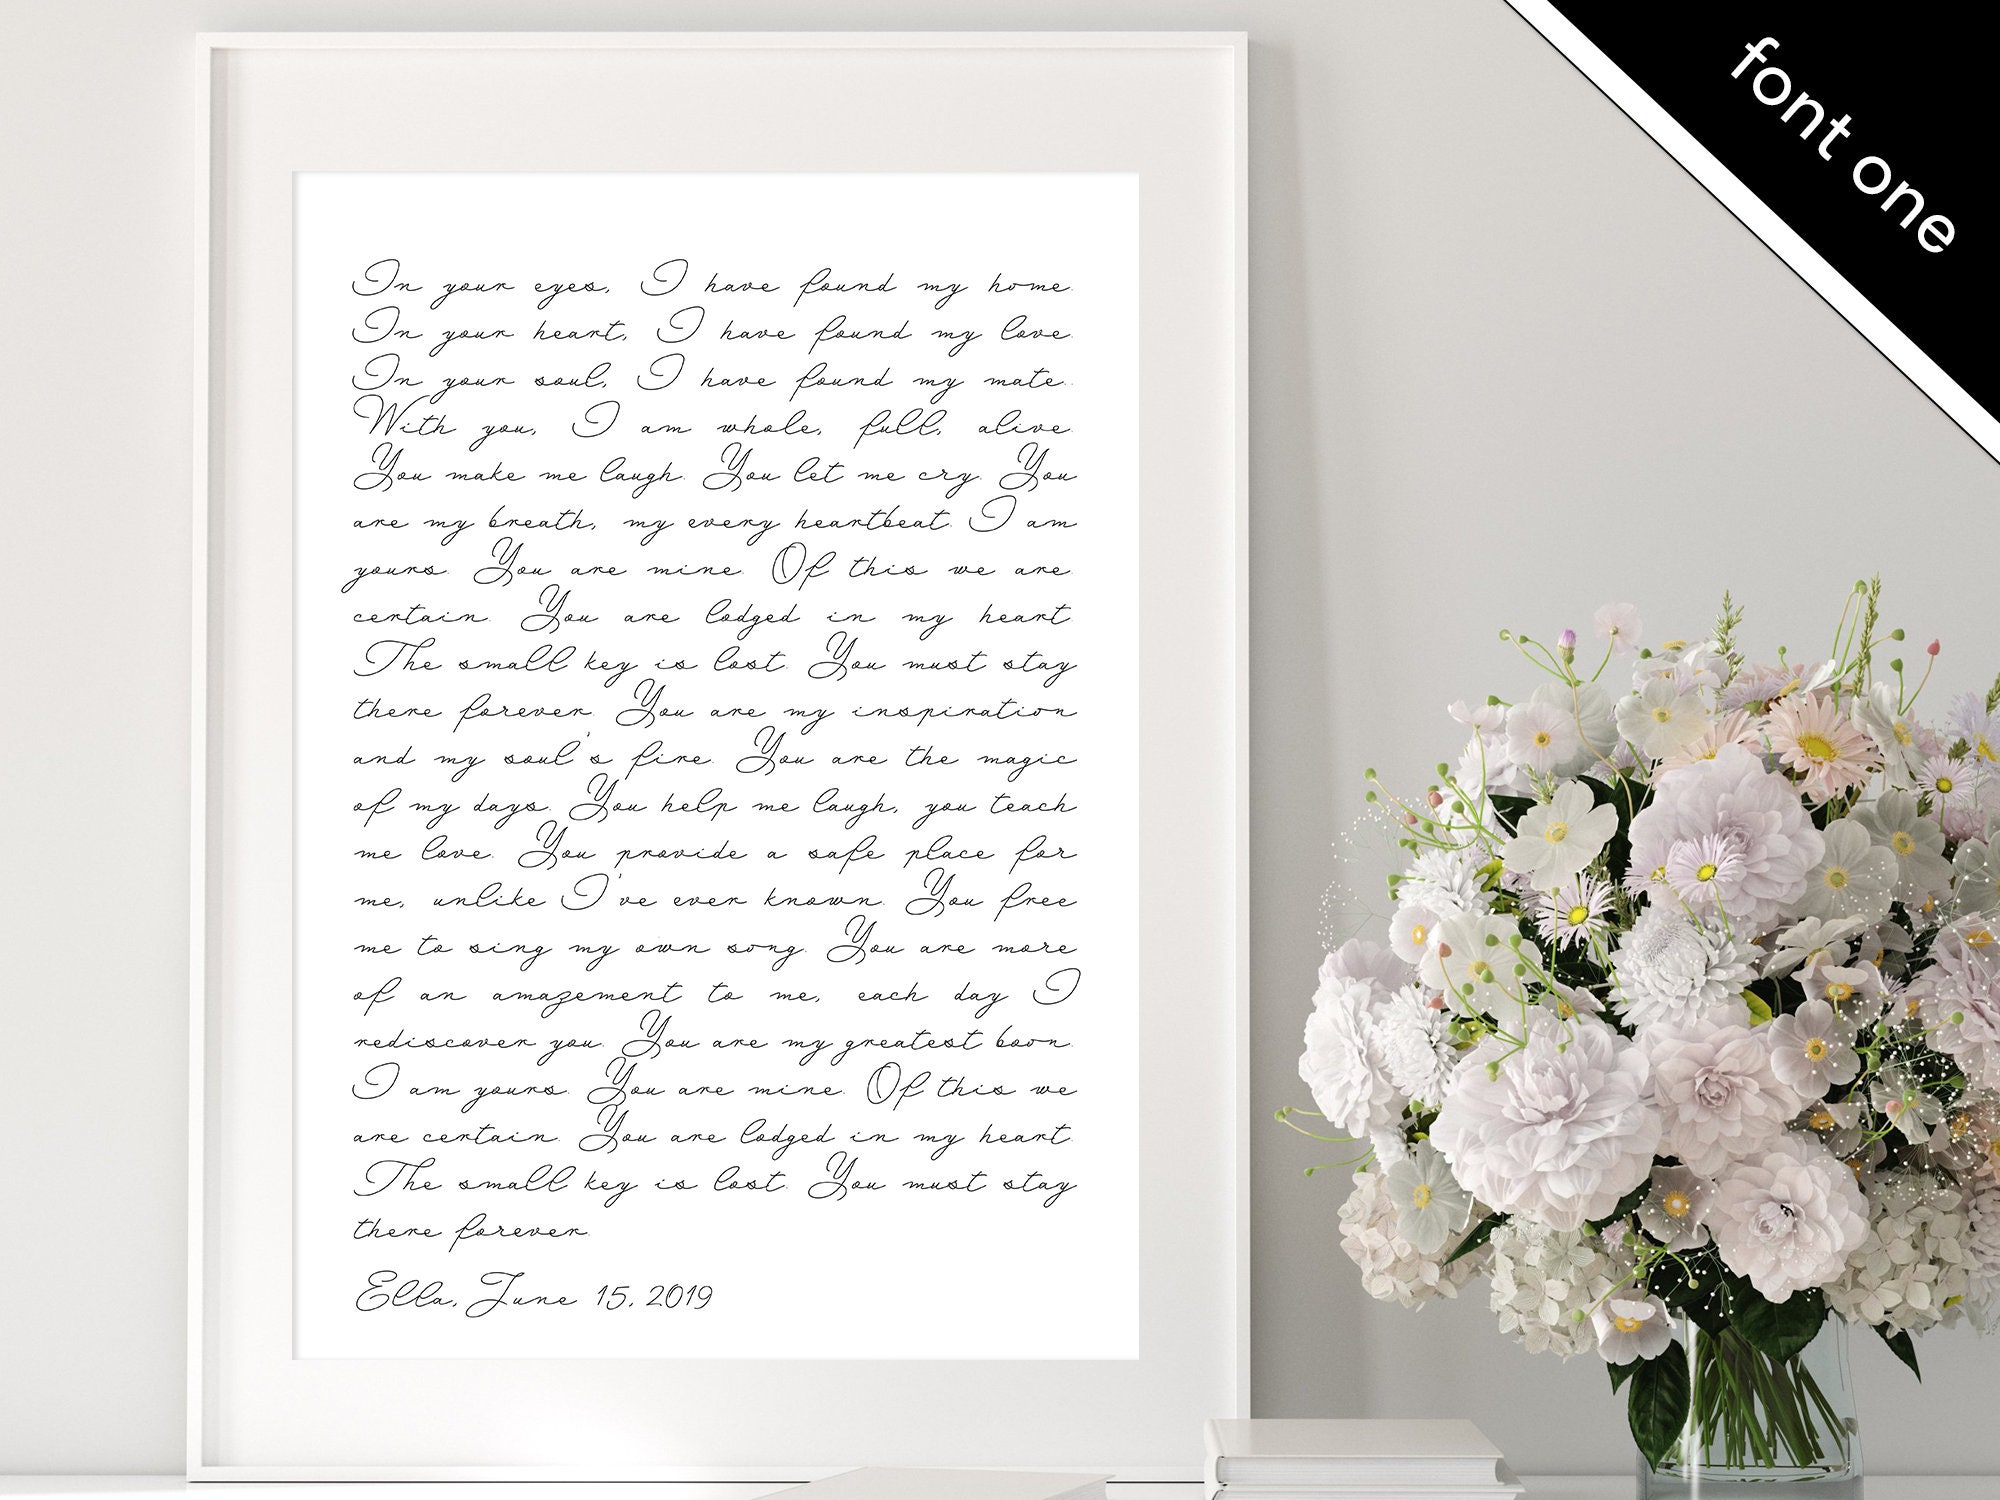 In your eyes, I have found my home.
In your heart, I have found my love.
In your soul, I have found my mate..
With you, I am whole, full, alive.
You make me laugh. You let me cry. You
are my breath, my every heartbeat. I am
yours. You are mine. Of this we are
certain. You are lodged in my heart.
The small key is lost. You must stay
there forever. You are my inspiration
and my soul's fire. You are the magic
of my days. You help me laugh, you teach
me love. You provide a safe place for
me, unlike I've ever known. You free
me to sing my own song. You are more
of an amazement to me, each day I
rediscover you. You are my greatest boon.
I am yours. You are mine. Of this we
are certain. You are lodged in my heart.
The small key is lost. You must stay
there forever.
Ella, June 15, 2019
font one